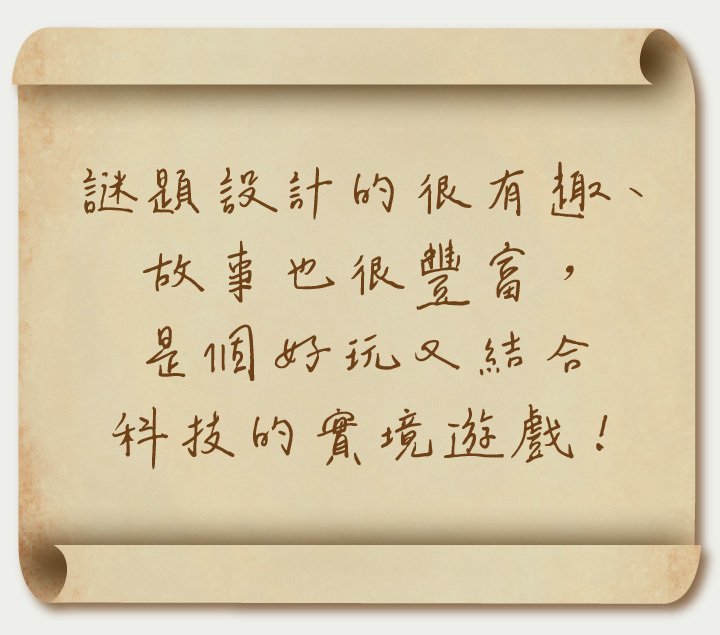 謎題設計的很有趣、
故事也很豐富，
是個好玩又結合
科技的實境遊戲！